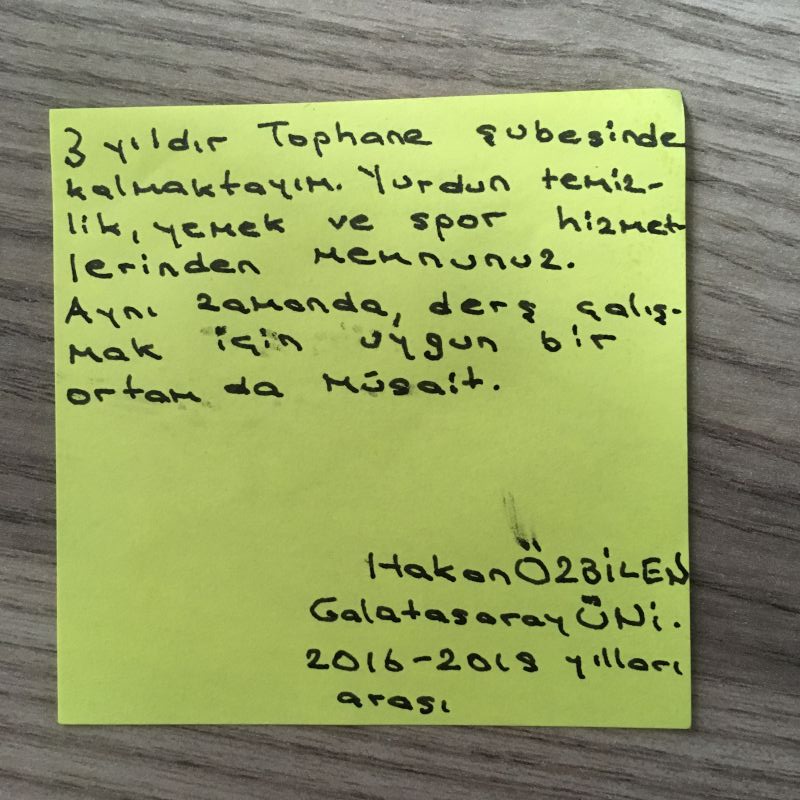 3 yıldır Tophane şubesinde
kalmaktayım. Yurdun temiz-
lik, yemek ve spor hizmet-
lerinden memnunuz.
Aynı zamanda, ders çalış-
mak için uygun bir
ortam da müsait.
Hakan ÖZBİLEN
Galatasaray ÜNİ.
2016-2019 yılları
arası